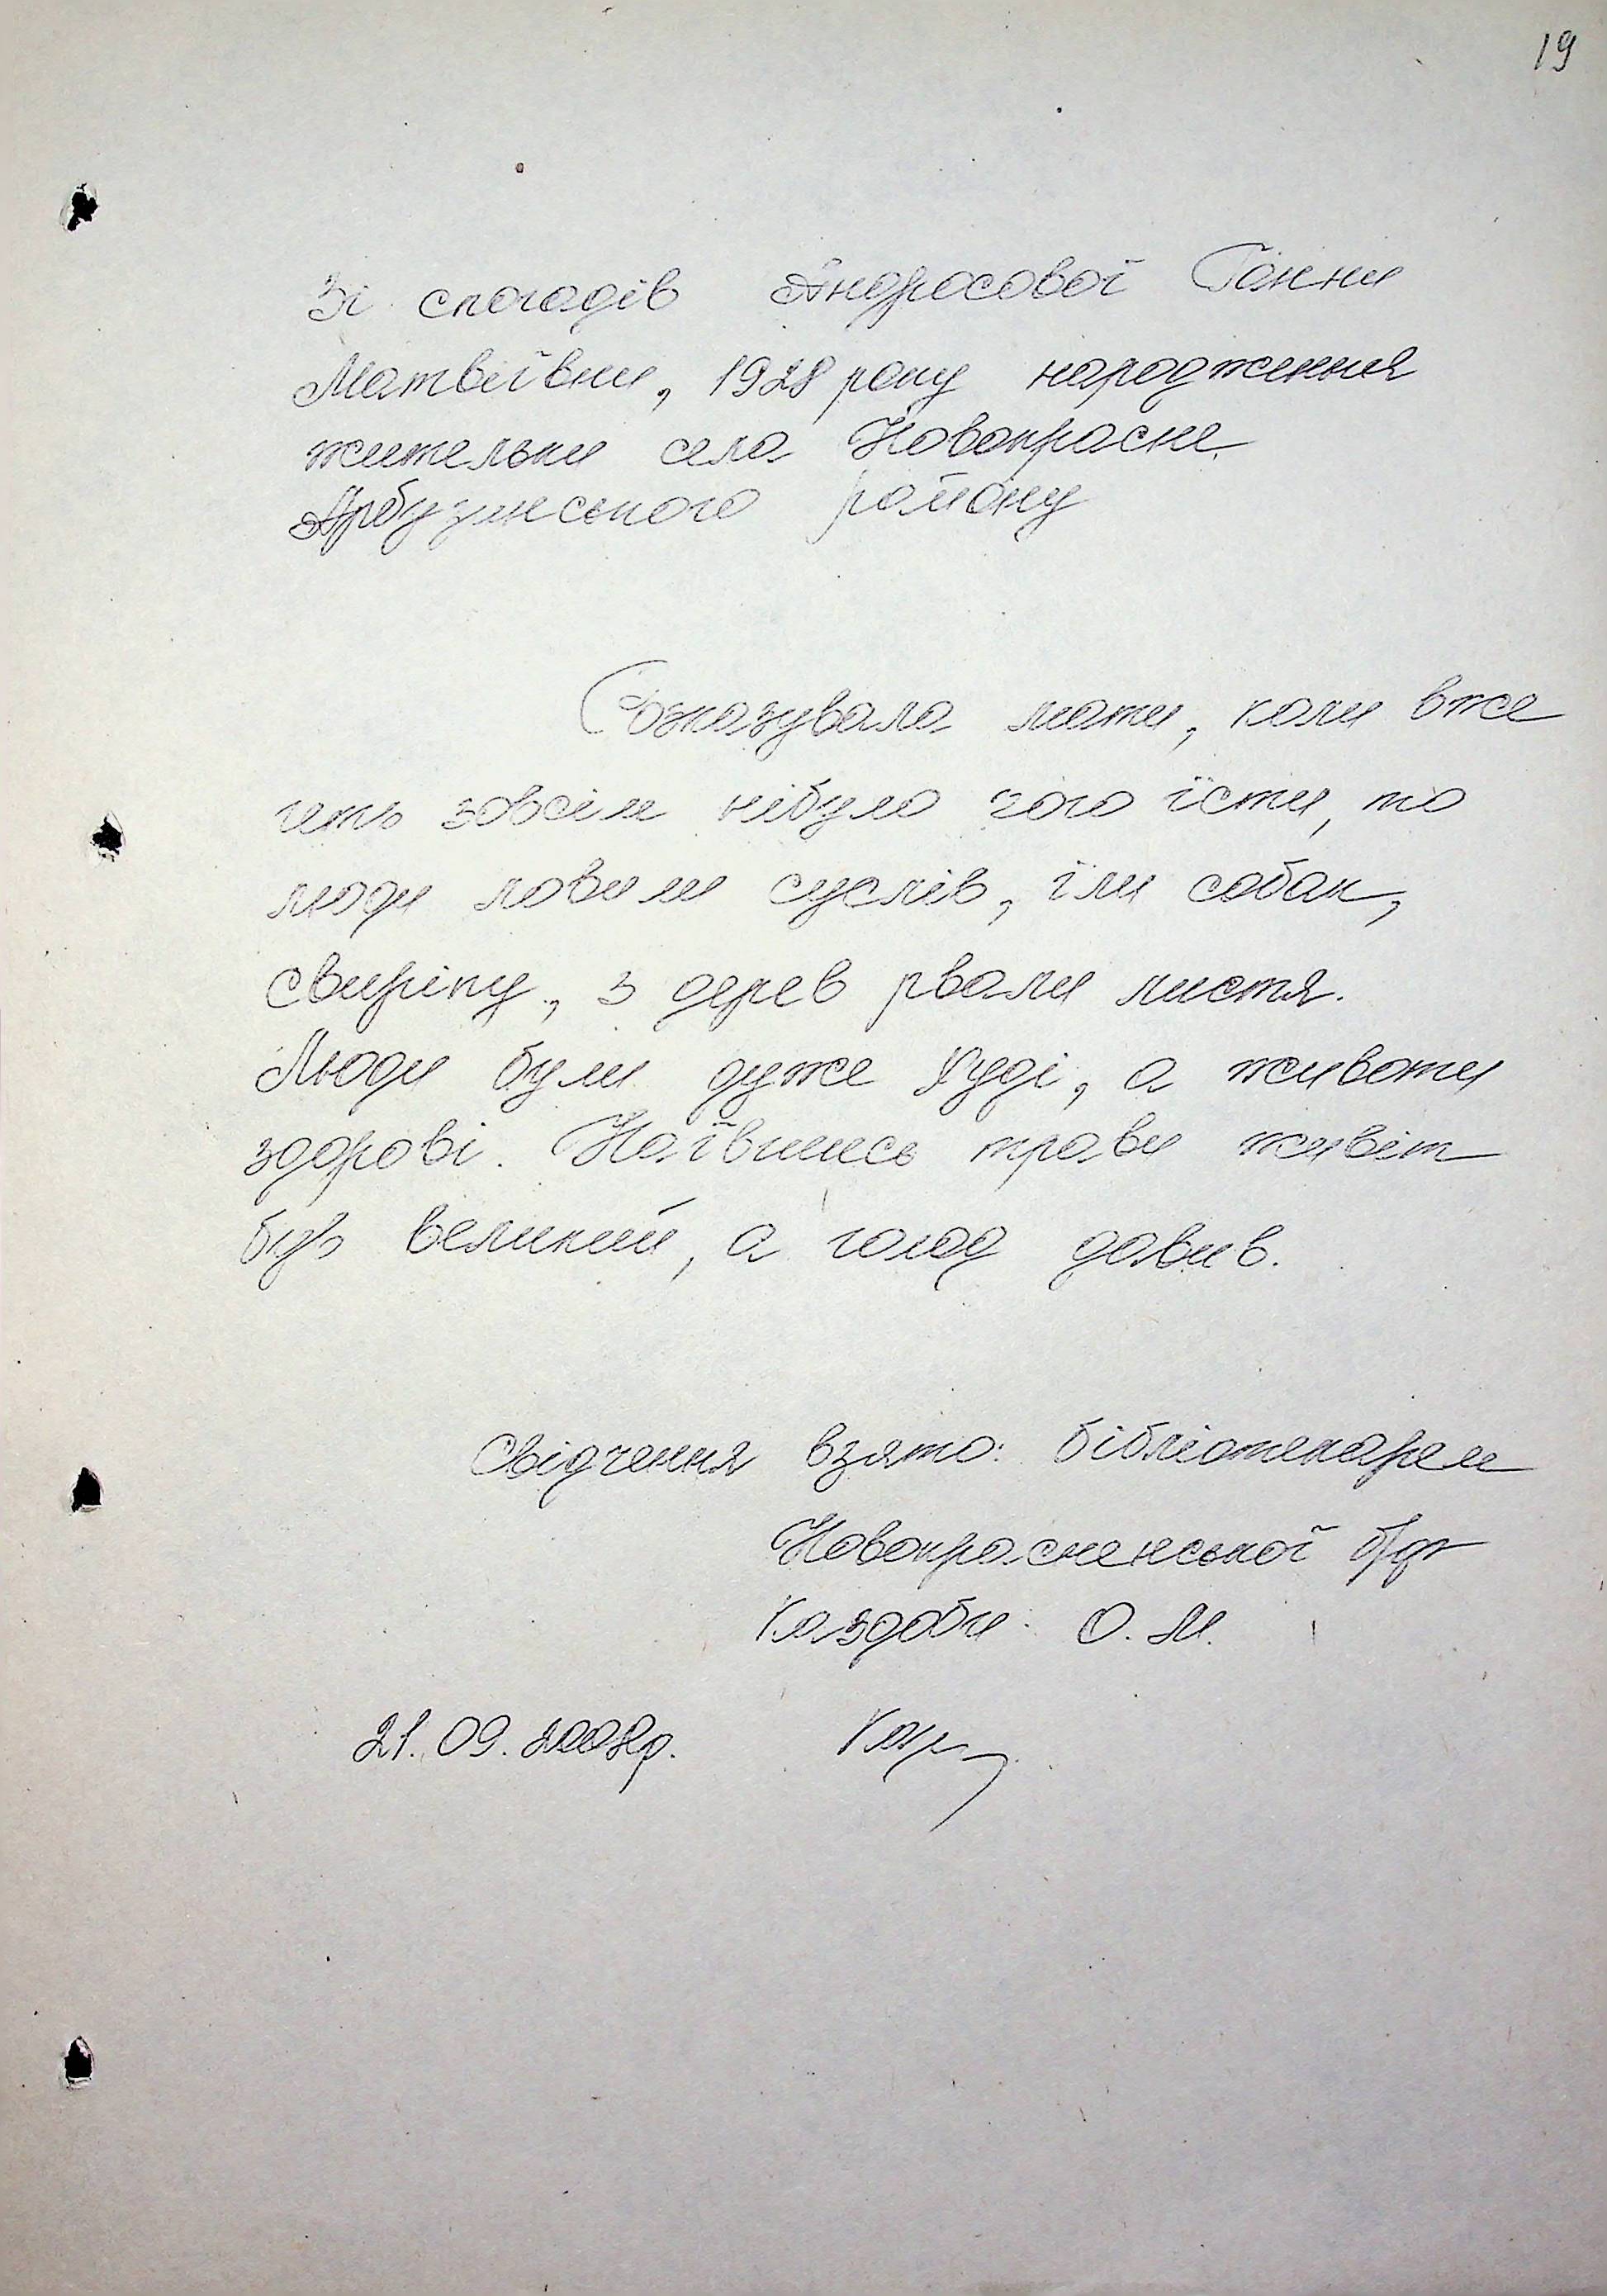 19
Зі спогадів Андросової Ганни
Матвіївни, 1928 року народження
жительки села Новокрасне
Арбузинського району
Розказувала мати, коли вже
геть зовсім нібуло чого їсти, то
люди ловили суслів, їли собак,
свиріпу, з дерев рвали листя.
Люди були дуже худі, а животи
здорові. Наївшись трави живіт
був великий, а голод давив.
Свідчення взято: бібліотекарем
Новокрасненської б/ф
О. М.
21. 09. 2008р.